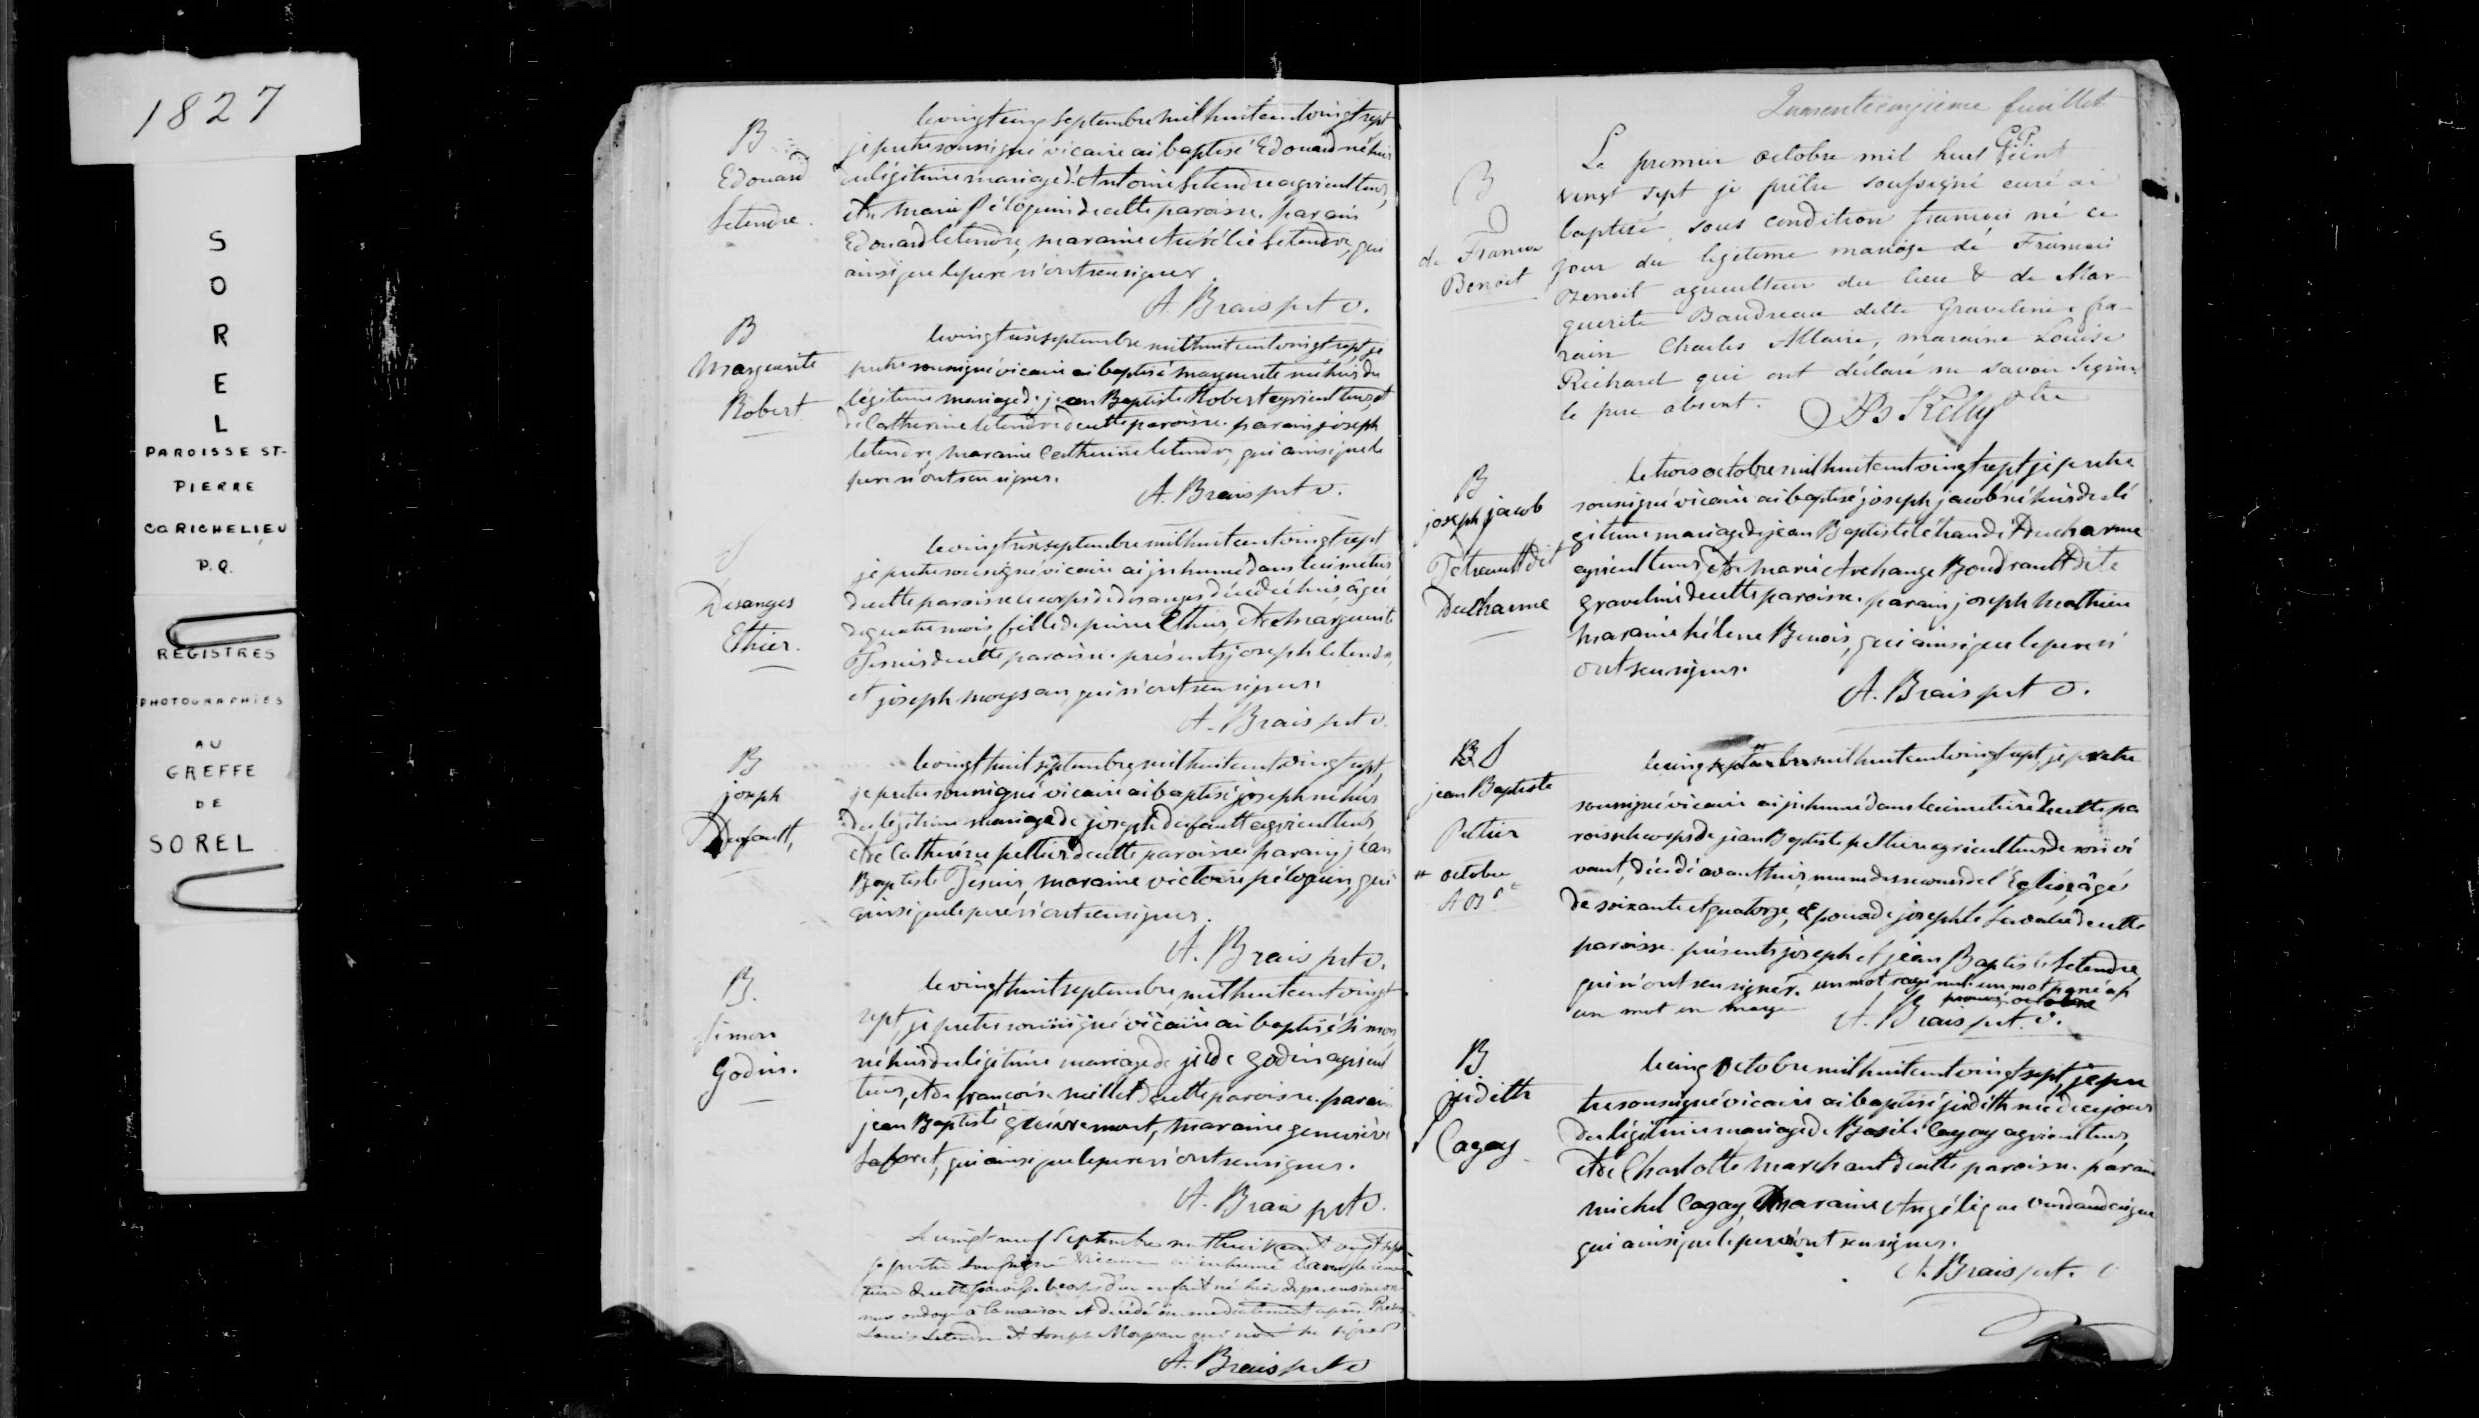 1827
S
O
R
E
L
PAROISSE ST-
PIERRE
CO RICHELIEU
P.Q.
REGISTRES
PHOTOGRAPHIÉS
AU
GREFFE
DE
SOREL
B
Edouard
Letendre.
le vingt cinq septembre mil huit cent vingt sept
je pretre sousigné vicaire ai baptisé Edouard né hier
du légitime mariage d'Antoine Letendre agriculteur,
et de Marie Péloquin de cette paroisse. parain
Edouard letendre, maraine Aurélie Letendre, qui
ainsi que le pere n'ont seu signer.
A. Brais ptre v.
B
Marguerite
Robert
le vingt six septembre mil huit cent vingt sept, je
pretre sousigné vicaire ai baptisé marguerite née hier du
légitime mariage de jean Baptiste Robert agriculteur, et
de Catherine letendre de cette paroisse. parain joseph
letendre, maraine Catherine letendre, qui ainsi que le
pere n'ont seu signer.
A. Brais ptre v.
S
Desanges
Ethier.
le vingt six septembre mil huit cent vingt sept
je pretre sousigné vicaire ai inhumé dans le cimetiere
de cette paroisse le corps de desanges décédée hier, âgée
de quatre mois, fille de pierre Ethier, et de Marguerite
de cette paroisse. présents joseph letendre,
et joseph mongean, qui n'ont seu signer.
A. Brais ptre v.
B
joseph
Dufault,
le vingt huit septembre mil huit cent vingt sept,
je pretre sousigné vicaire ai baptisé joseph né hier
du légitime mariage de joseph dufault agriculteur
et de Catherine peltier de cette paroisse. parain jean
Baptiste maraine victoire péloquin, qui
ainsi que le pere n'ont seu signer.
A. Brais ptre v.
B.
Simon
Godin.
le vingt huit septembre mil huit cent vingt
sept, je pretre sousigné vicaire ai baptisé simon
né hier du légitime mariage de godin agricul
teur, et de françoise millet de cette paroisse. parain
jean Baptiste guévremont, maraine genevieve
qui ainsi que le pere n'ont seu signer.
A. Brais ptre v.
Le vingt neuf Septembre mil huit cent vingt sept
je pretre soussigné vicaire ai inhumé dans le cime
tiere de cette paroisse le corps d'un enfant né hier de parens incon
nus ondoyé à la maison et décédé immédiatement après. Présens
Louis Letendre et Joseph Mongeau qui n'ont su signer
A. Brais ptre v
Quarante feuillet
B
de Francois
Benoit
Le premier octobre mil huit Cent
vingt sept je prêtre soussigné curé ai
baptisé sous condition francois né ce
jour du legitime mariage de Francois
Benoit agriculteur du lieu & de Mar-
guerite Baudreau dette Graveline. pa-
rain Charles Allaire, maraine Louise
Richard qui ont déclaré ne savoir signer
le pere absent.
JBs Kelly Ptre
B
joseph jacob
Tetreault dit
Ducharme
le trois octobre mil huit cent vingt sept je pretre
sousigné vicaire ai baptisé joseph jacob né hier du lé
gitime mariage de jean Baptiste tétrau dit Ducharme
agriculteur, et de Marie Archange Boudrault dite
graveline de cette paroisse. parain joseph mathieu
maraine hélene Benois, qui ainsi que le pere n'
ont seu signer.
A. Brais ptre v.
S
jean Baptiste
Peltier
# octobre
le cinq mil huit cent vingt sept je pretre
sousigné vicaire ai inhumé dans le cimetiere de cette pa
roisse le corps de jean Baptiste peltier agriculteur de son vi
vant, décédé avanthier, muni des secours de l'Eglise, âgé
de soixante et quatorze, époux de josephte Lavalé de cette
paroisse. présents joseph et jean Baptiste letendre
qui n'ont seu signer. un mot rayé nul
un mot en marge
A. Brais ptre v.
B.
judith
Cagay
le cinq octobre mil huit cent vingt sept, je pre
tre sousigné vicaire ai baptisé judith née de ce jour
du légitime mariage de Basile Cagay agriculteur,
et de Charlotte marchant de cette paroisse. parain
michel Cagay, Maraine Angélique
qui ainsi que le pere n'ont seu signer.
A. Brais ptre v